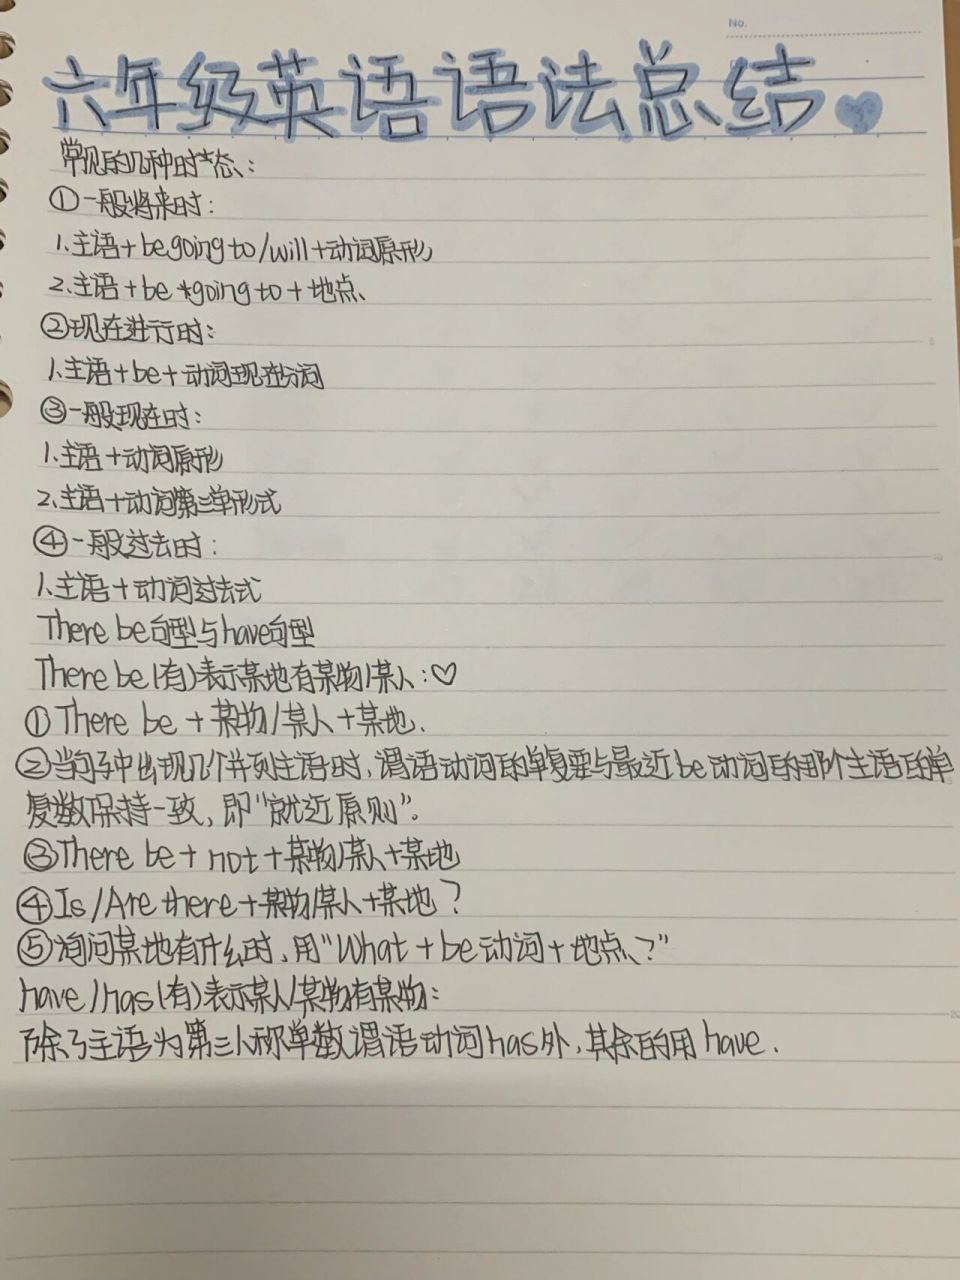 No.
六年级英语语法总结
常见的几种时态:
①一般将来时:
1.主语+be going to/will+动词原形
2.主语+be going to+地点
②现在进行时:
1.主语+be+动词现在分词
③一般现在时:
1.主语+动词原形
2.主语+动词第三单形式
④一般过去时:
1.主语+动词过去式
There be句型与have句型
There be(有)表示某地有某物/某人:♡
①There be+某物/某人+某地.
②当句子中出现几个并列主语时,谓语动词的单复要与最近be动词的那个主语的单
复数保持一致,即“就近原则”。
③There be+not+某物/某人+某地
④Is/Are there+某物/某人+某地?
⑤询问某地有什么时,用“What+be动词+地点?”
have/has(有)表示某人/某物有某物:
除了主语为第三人称单数谓语动词has外,其余的用have.